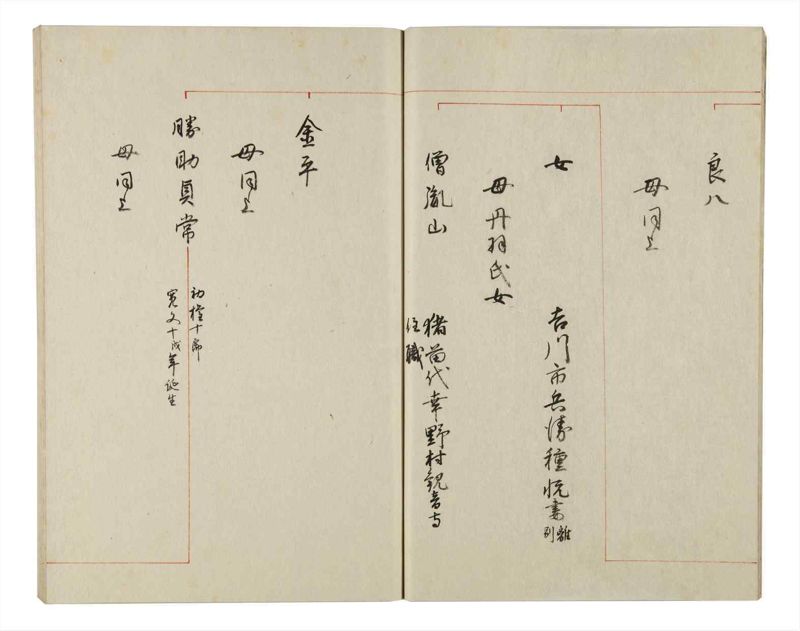 良八
母同上
女
吉川市兵衛種悦妻
離別
母丹羽氏女
僧胤山
猪苗代幸野村観音寺
住職
金平
母同上
勝助員常
初権十郎
寛文十戌年誕生
母同上